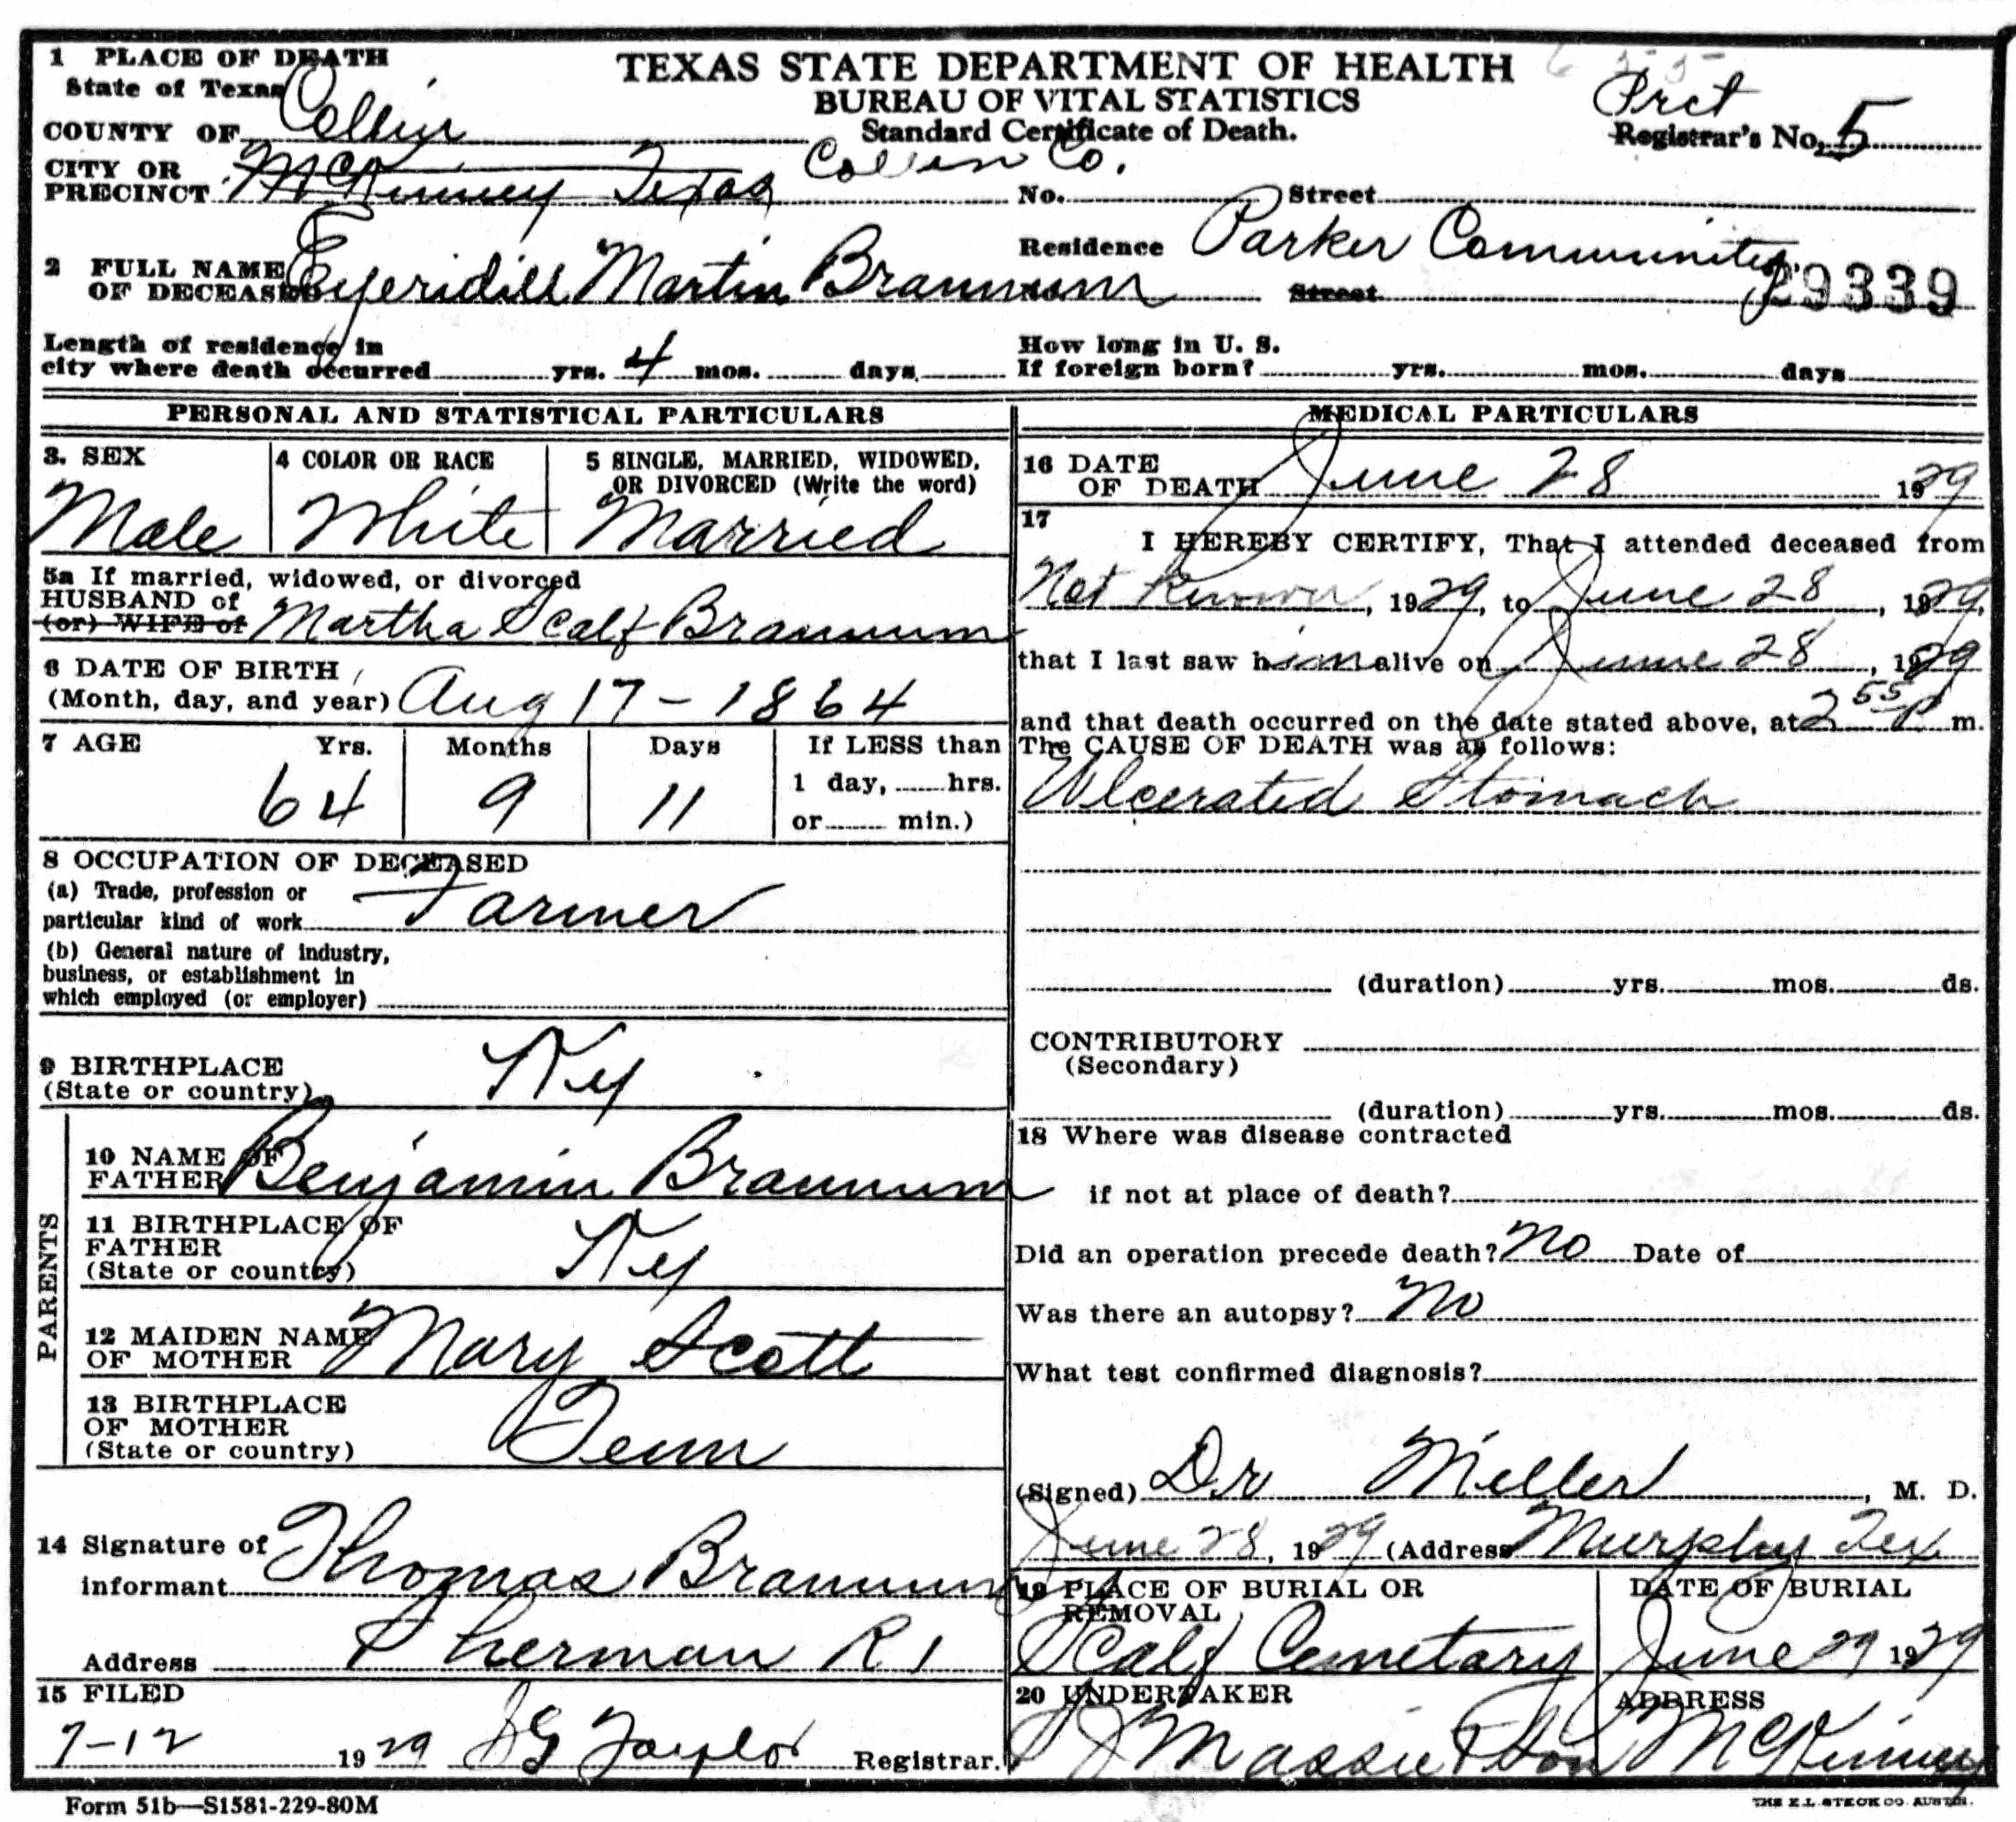 1 PLACE OF DEATH
State of Texas
COUNTY OF Collin
TEXAS STATE DEPARTMENT OF HEALTH
BUREAU OF VITAL STATISTICS
Standard Certificate of Death.
Prct
Registrar's No. 5
CITY OR
PRECINCT McKinney Texas Collin Co. No. Street
Residence Parker Community
2 FULL NAME
OF DECEASED Martin Brannum Street 29339
Length of residence in
city where death occurred yrs. 4 mos. days
How long in U. S.
If foreign born? yrs. mos. days
PERSONAL AND STATISTICAL PARTICULARS
3. SEX
Male
4 COLOR OR RACE
White
5 SINGLE, MARRIED, WIDOWED,
OR DIVORCED (Write the word)
Married
5a If married, widowed, or divorced
HUSBAND of
(or) WIFE of Martha Scalf Brannum
6 DATE OF BIRTH
(Month, day, and year) Aug 17 - 1864
7 AGE Yrs. Months Days If LESS than
1 day, hrs.
64 9 11 or min.)
8 OCCUPATION OF DECEASED
(a) Trade, profession or
particular kind of work Farmer
(b) General nature of industry,
business, or establishment in
which employed (or employer)
9 BIRTHPLACE
(State or country) Ky
PARENTS
10 NAME OF
FATHER Benjamin Brannum
11 BIRTHPLACE OF
FATHER
(State or country) Ky
12 MAIDEN NAME
OF MOTHER Mary Scott
13 BIRTHPLACE
OF MOTHER
(State or country) Tenn
14 Signature of
informant Thomas Brannum
Address Sherman R 1
15 FILED
7-12 1929 Taylor Registrar.
MEDICAL PARTICULARS
16 DATE
OF DEATH June 28 1929
17
I HEREBY CERTIFY, That I attended deceased from
Not Known, 1929, to June 28, 1929,
that I last saw him alive on June 28, 1929
and that death occurred on the date stated above, at 2 55 P m.
The CAUSE OF DEATH was as follows:
Ulcerated Stomach
(duration) yrs. mos. ds.
CONTRIBUTORY
(Secondary)
(duration) yrs. mos. ds.
18 Where was disease contracted
if not at place of death?
Did an operation precede death? No Date of
Was there an autopsy? No
What test confirmed diagnosis?
(Signed) Dr Miller, M. D.
June 28, 1929 (Address Murphy Tex
19 PLACE OF BURIAL OR
REMOVAL
Scalf Cemetary
DATE OF BURIAL
June 29 1929
20 UNDERTAKER
J Massie & Son
ADDRESS
McKinney
Form 51b—S1581-229-80M
THE E.L. STECK CO. AUSTIN.